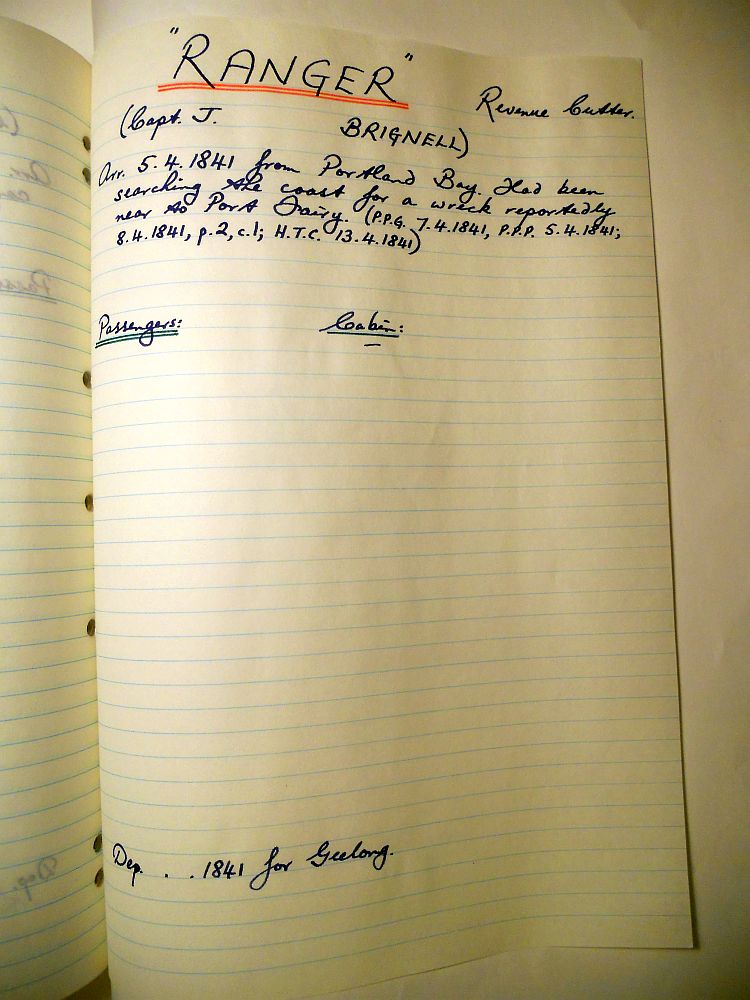 "RANGER" Revenue Cutter.
(Capt. J. BRIGNELL)
Arr. 5.4.1841 from Portland Bay. Had been
searching the coast for a wreck reportedly
near to Port Fairy. (P.P.G. 7.4.1841, P.P.P. 5.4.1841;
8.4.1841, p.2, c.1; H.T.C. 13.4.1841)
Passengers: Cabin:
—
Dep. . . 1841 for Geelong.